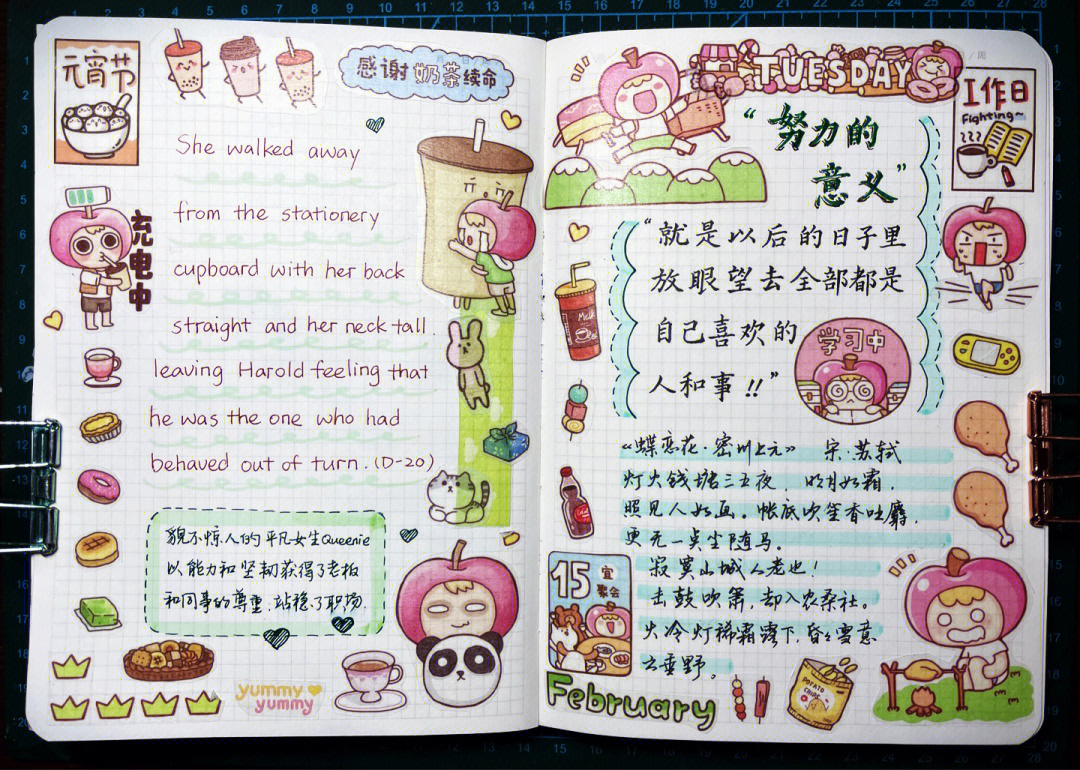 元宵节
感谢奶茶续命
She walked away
from the stationery
cupboard with her back
straight and her neck tall.
leaving Harold feeling that
he was the one who had
behaved out of turn. (D-20)
充电中
貌不惊人的平凡女生Queenie
以能力和坚韧获得了老板
和同事的尊重.站稳了职场.
yummy
yummy
TUESDAY
工作日
Fighting~
“努力的
意义”
“就是以后的日子里
放眼望去全部都是
自己喜欢的
人和事!!”
学习中
Milk
《蝶恋花·密州上元》 宋·苏轼
灯火钱塘三五夜 明月如霜,
照见人如画。帐底吹笙香吐麝,
更无一点尘随马。
寂寞山城人老也!
击鼓吹箫,却入农桑社。
火冷灯稀霜露下,昏昏雪意
云垂野。
15
宜
聚会
February
POTATO
CHIPS